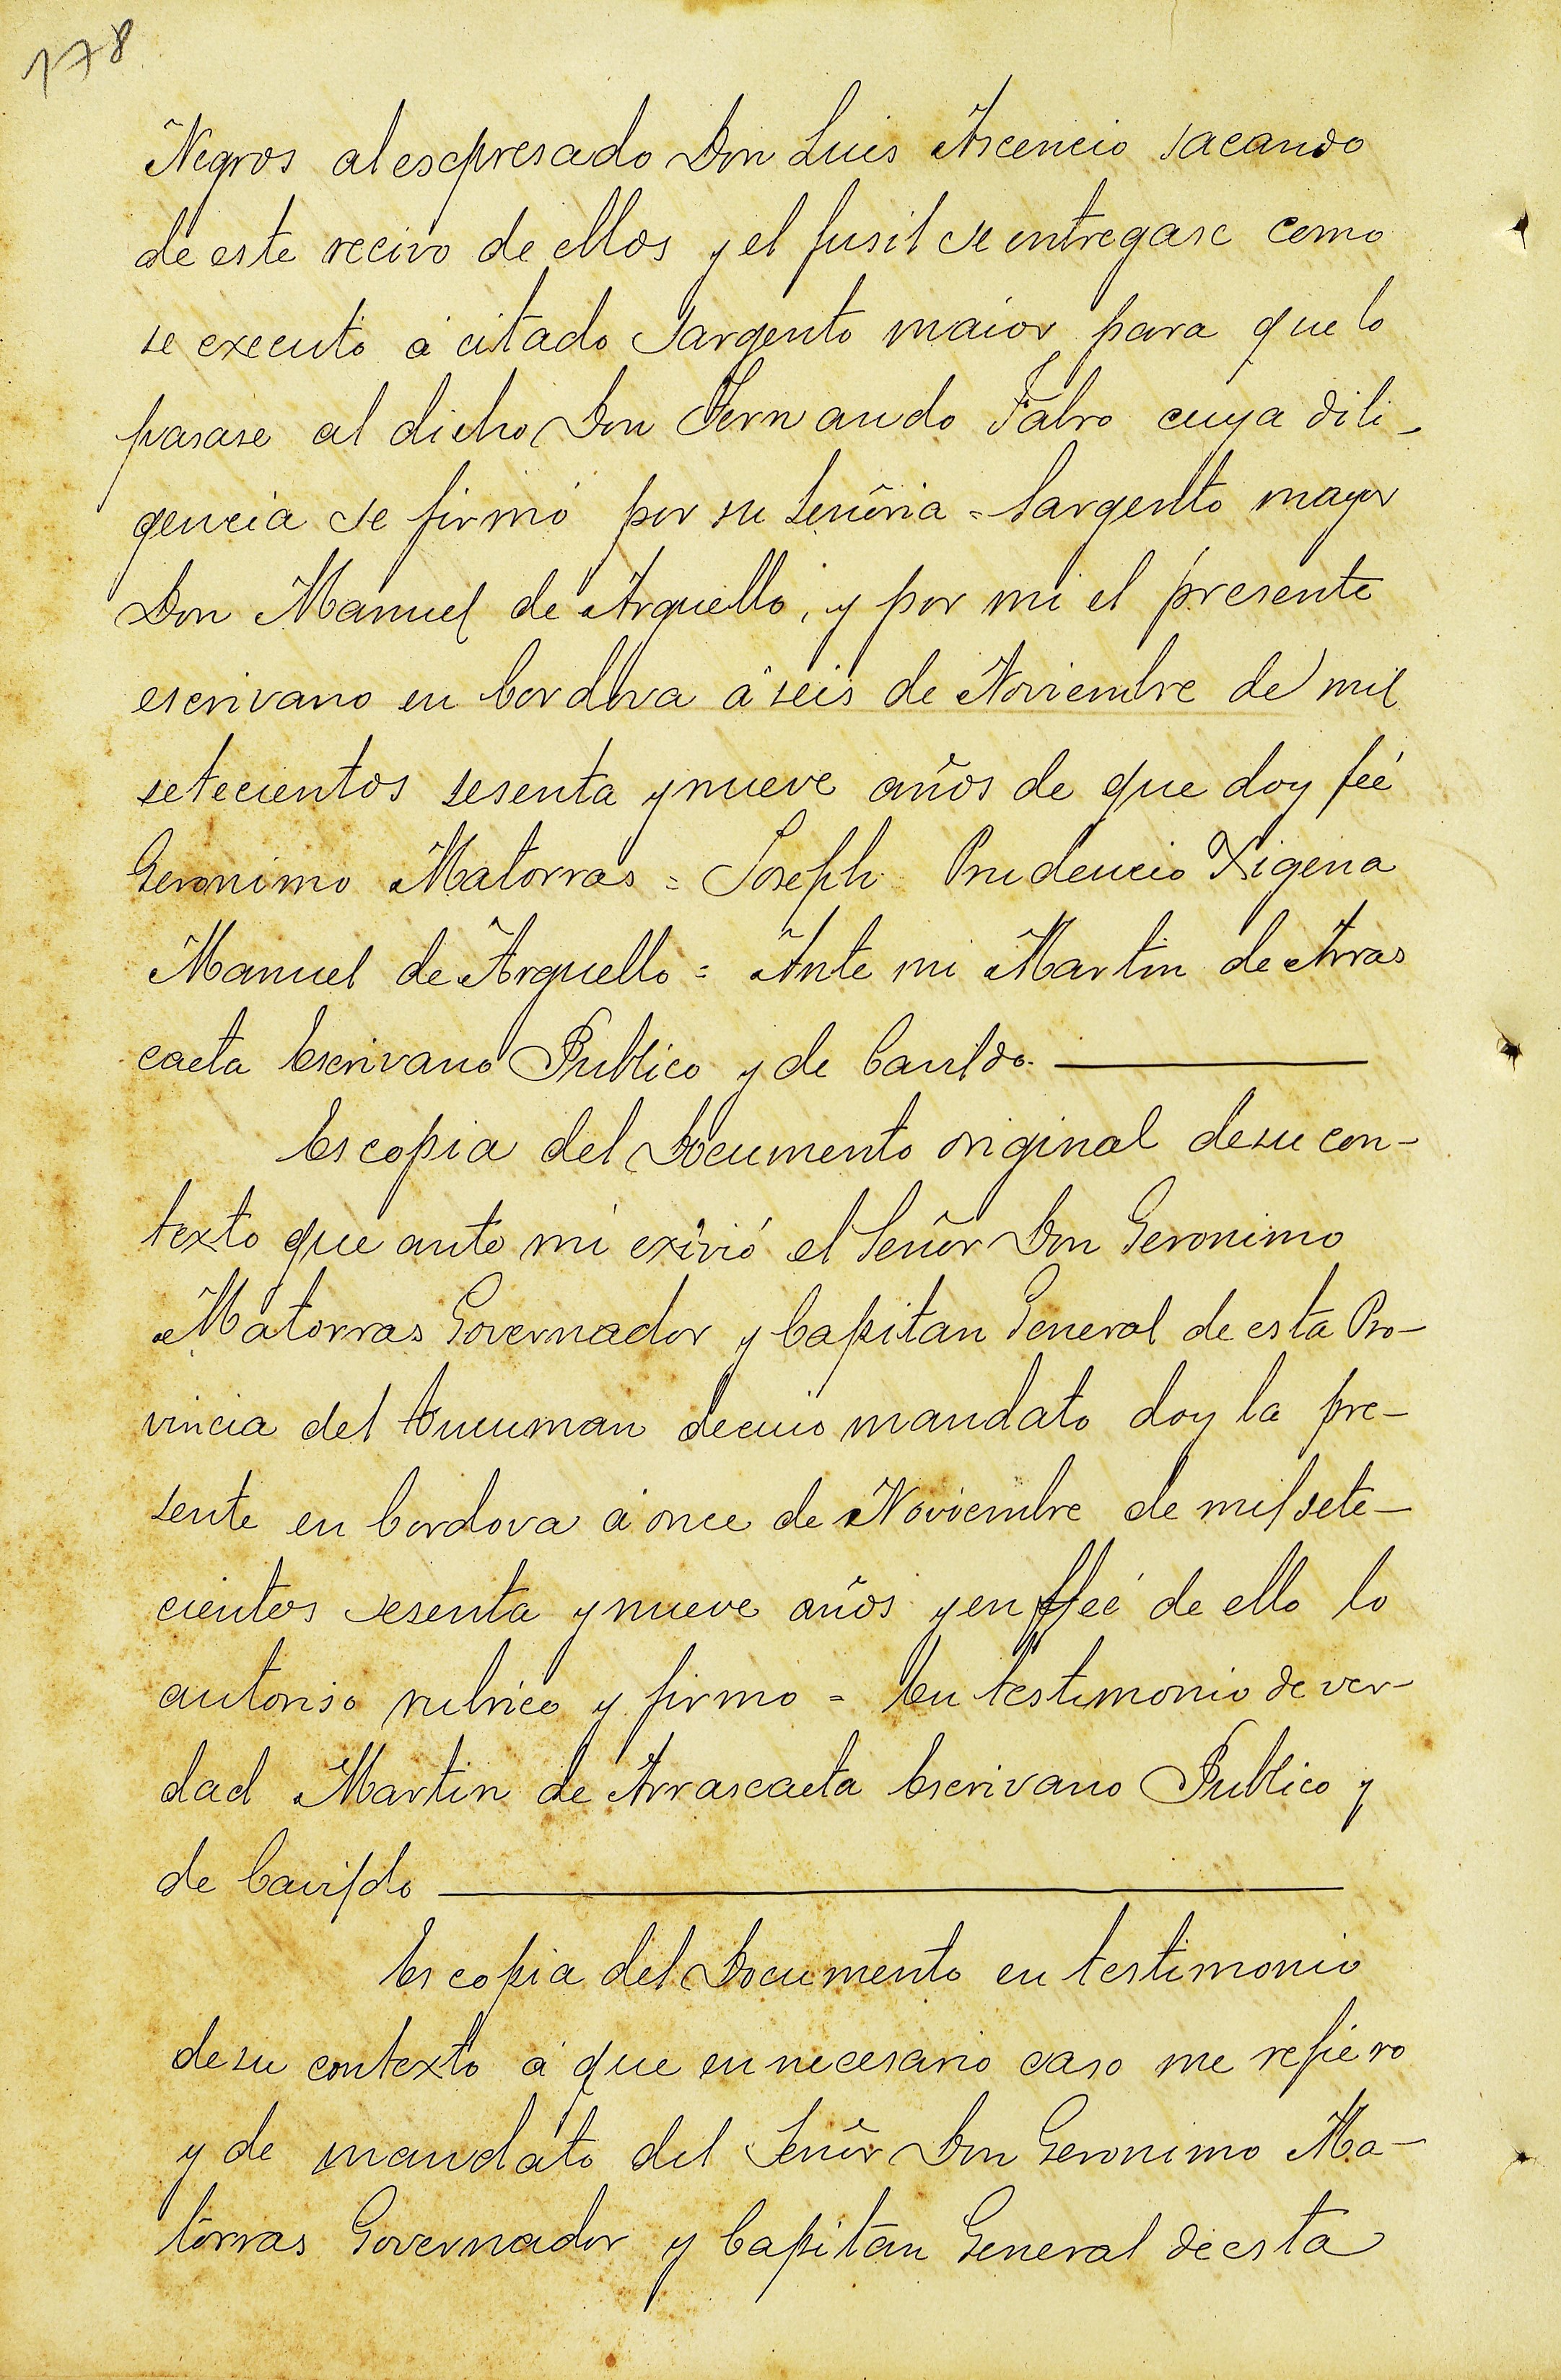 178
Negros al escpresado Don Luis Ascencio sacando
de este recivo de ellos y el fusil se entregase como
se executó á citado Sargento maior para que lo
pasase al dicho Don Fernando Fabro cuya dili-
gencia se firmó por su Señoria = Sargento mayor
Don Manuel de Arguello, y por mi el presente
escrivano en Cordova á seis de Noviembre de mil
setecientos sesenta y nueve años de que doy feé
Geronimo Matorras = Joseph Prudencio Xigena
Manuel de Arguello = Ante mi Martin de Arras
caeta Escrivano Publico y de Cavildo.
Es copia del Documento original de su con-
texto que ante mi exivió el Señor Don Geronimo
Matorras Governador y Capitan General de esta Pro-
vincia del Tucuman de cuio mandato doy la pre-
sente en Cordova á once de Noviembre de mil sete-
cientos sesenta y nueve años y en ffeé de ello lo
autoriso rubrico y firmo = En testimonio de ver-
dad Martin de Arrascaeta Escrivano Publico y
de Cavildo
Es copia del Documento en testimonio
de su contexto á que en necesario caso me refiero
y de mandato del Señor Don Geronimo Ma-
torras Governador y Capitan General de esta